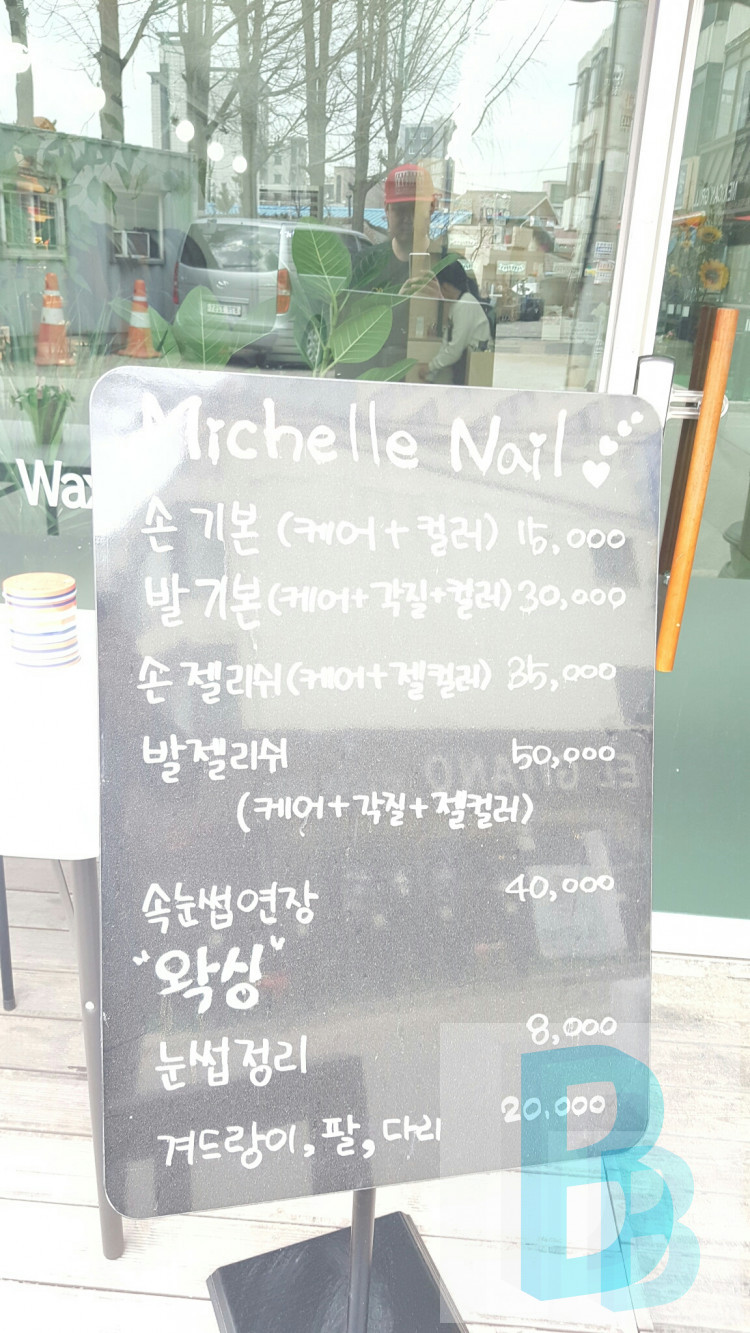 Michelle Nail
손 기본 (케어 + 컬러) 15,000
발 기본 (케어+각질+컬러) 30,000
손 젤리쉬 (케어+젤컬러) 35,000
발젤리쉬 50,000
(케어+각질+젤컬러)
속눈썹연장 40,000
"왁싱"
눈썹정리 8,000
겨드랑이, 팔, 다리 20,000
Wax
EL GITANO
B
B